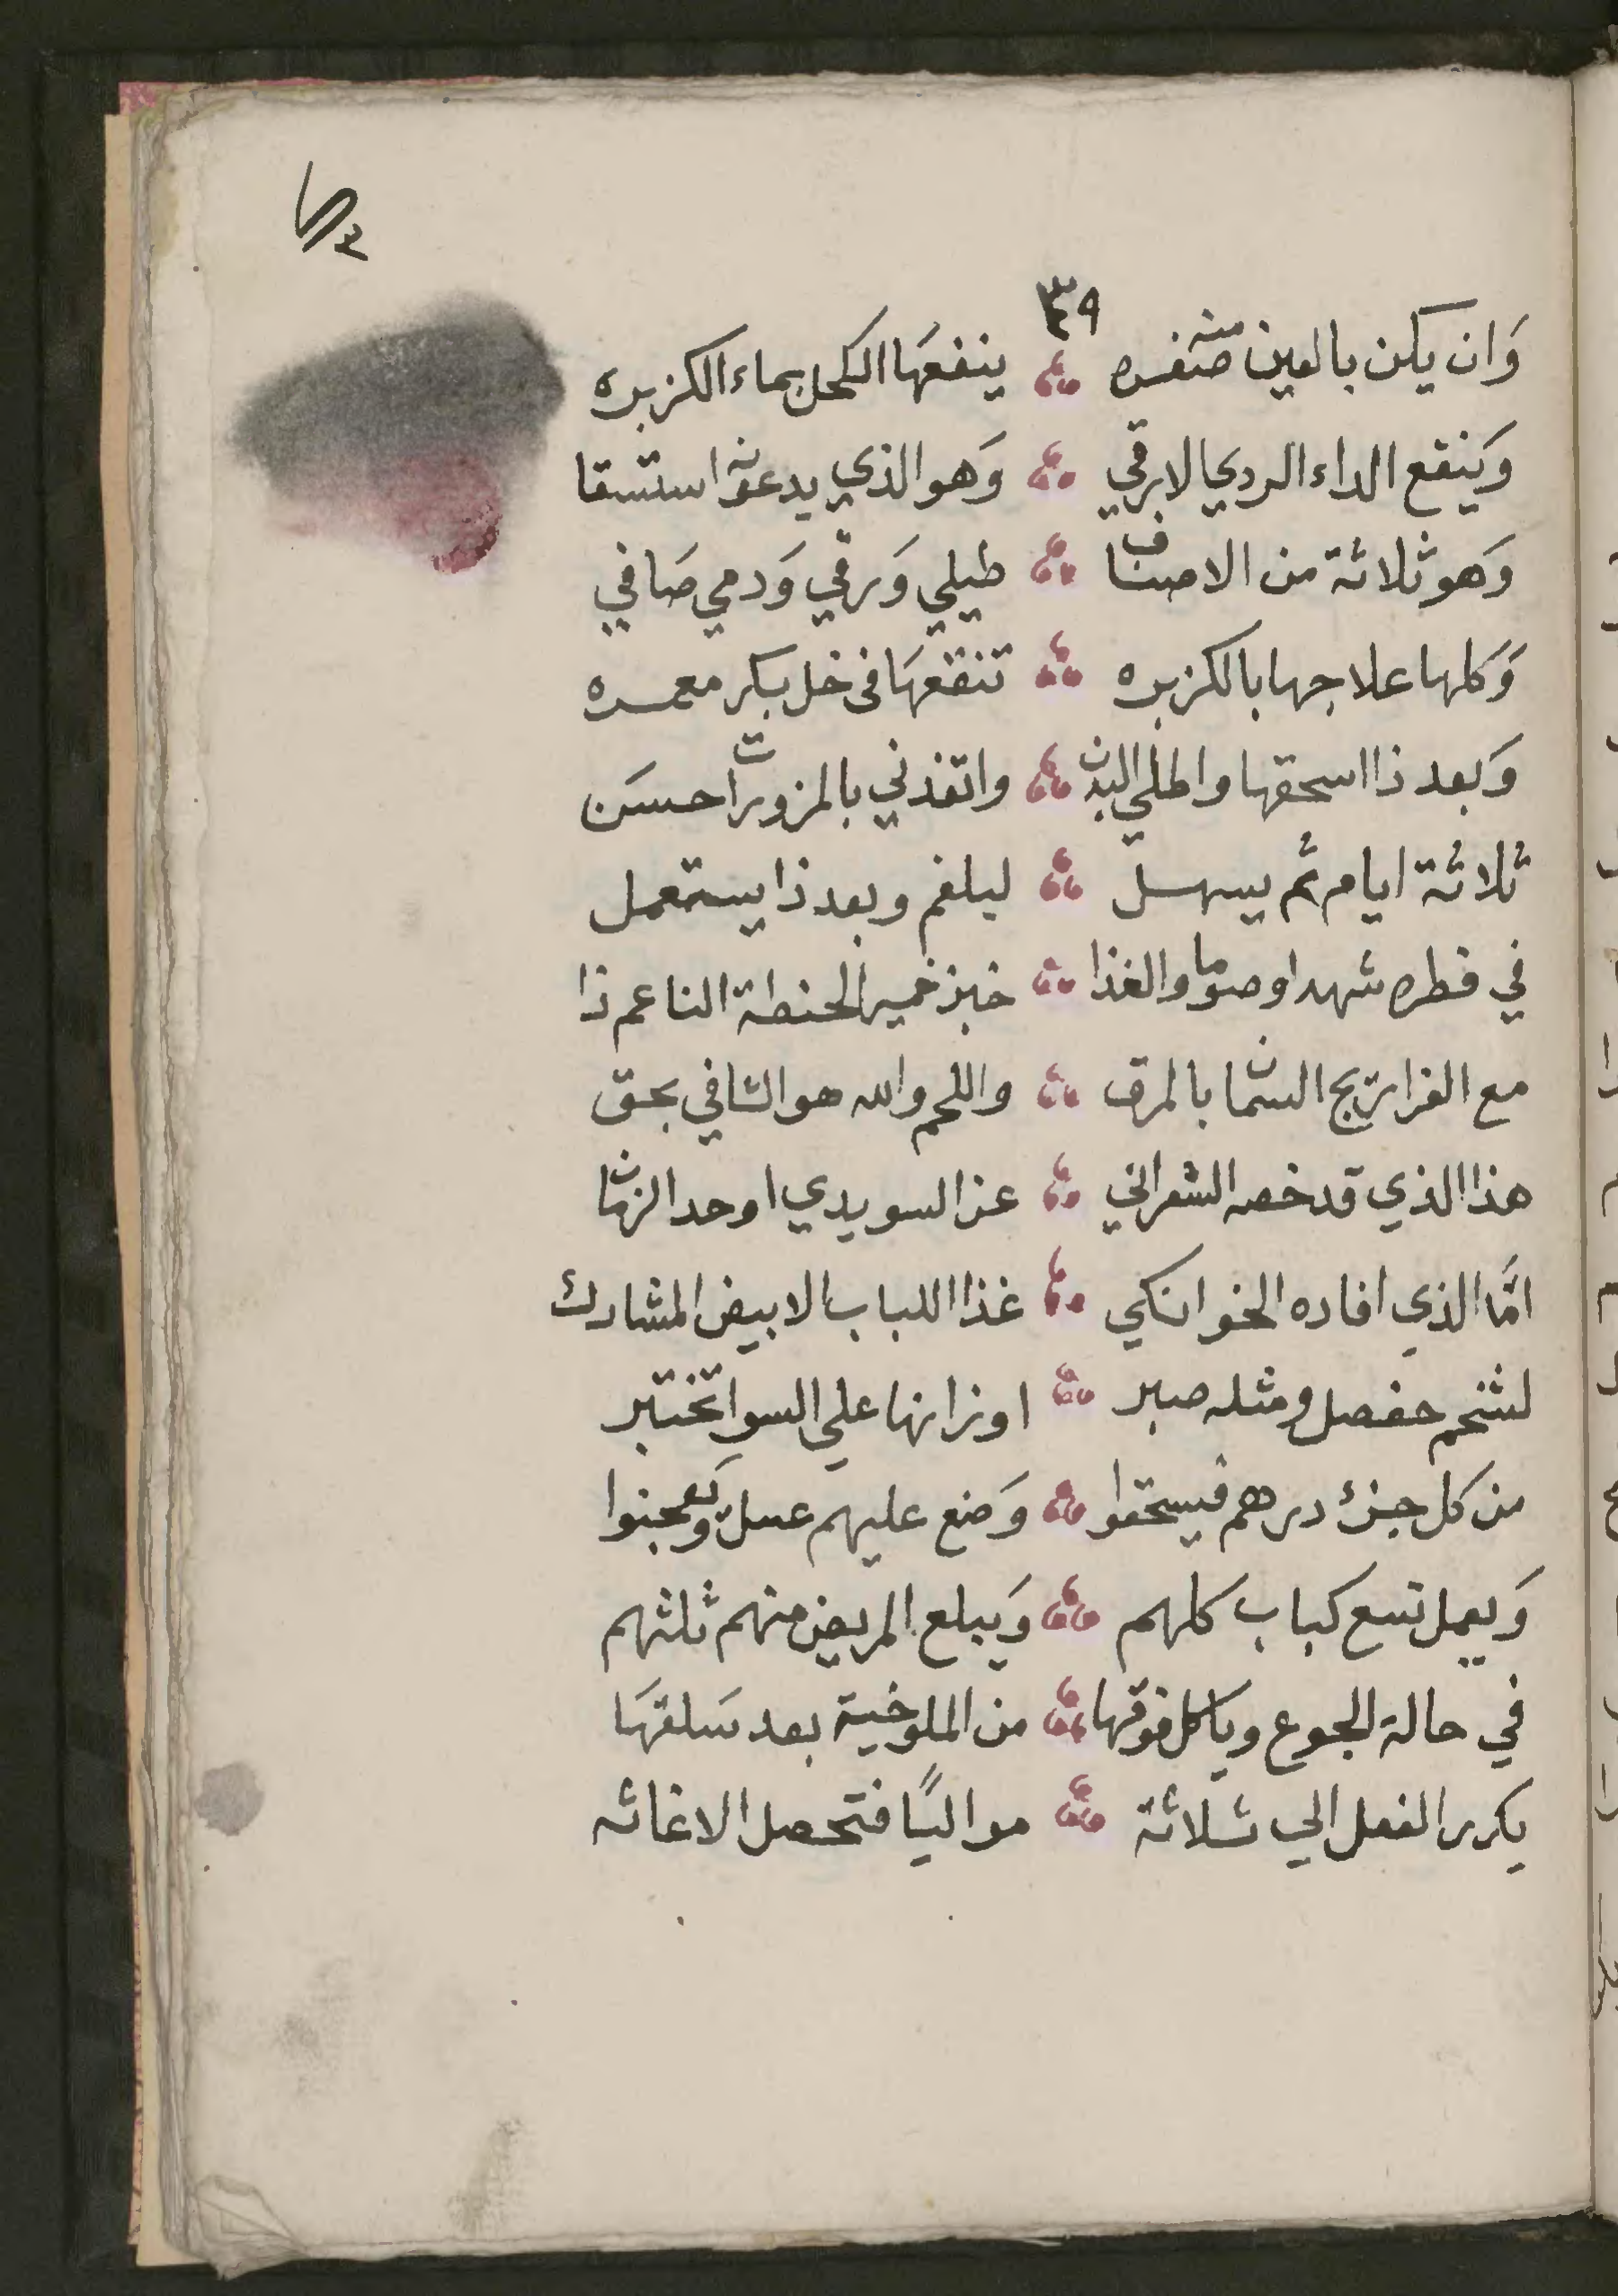 ٣٩
وَان يكن بالعين منه صفره ينفعهَا الكحل بماء الكزبره
وَينفع الداء الردي الازرقي وَهو الذي يدعونه استسقا
وَهو ثلاثة من الاصناف طبلي وَزقي وَدمي صَافي
وَكلها علاجها بالكزبره تنقعهَا فى خل بكر معصره
وَبعد ذا اسحقها واطلي البدن واتغذني بالمزورات احسَن
ثلاثة ايام ثم يسهل لبلغم وبعد ذا يستعمل
في فطره شهدا وصوما والغذا خبز خمير الحنطة الناعم ذا
مع الفراريج السمان بالمرق واللحم والله هو الشافي بحق
هذا الذي قد خصه الشعراني عن السويدي اوحد الزمان
امَّا الذي افاده الخوانكي غذا اللباب الابيض المشارك
لشحم حفصل ومثله صبر اوزانها علي السوا تختبر
من كل جزئ درهم فيسحقوا وَضع عليهم عسل ويعجنوا
وَيعمل تسع كباب كلهم وَيبلع المريض منهم ثلثهم
في حالة الجوع وياكل فوقها من الملوخية بعد سَلقهَا
يكرر الفعل الي ثلاثة مواليًا فتحصل الاغاثه